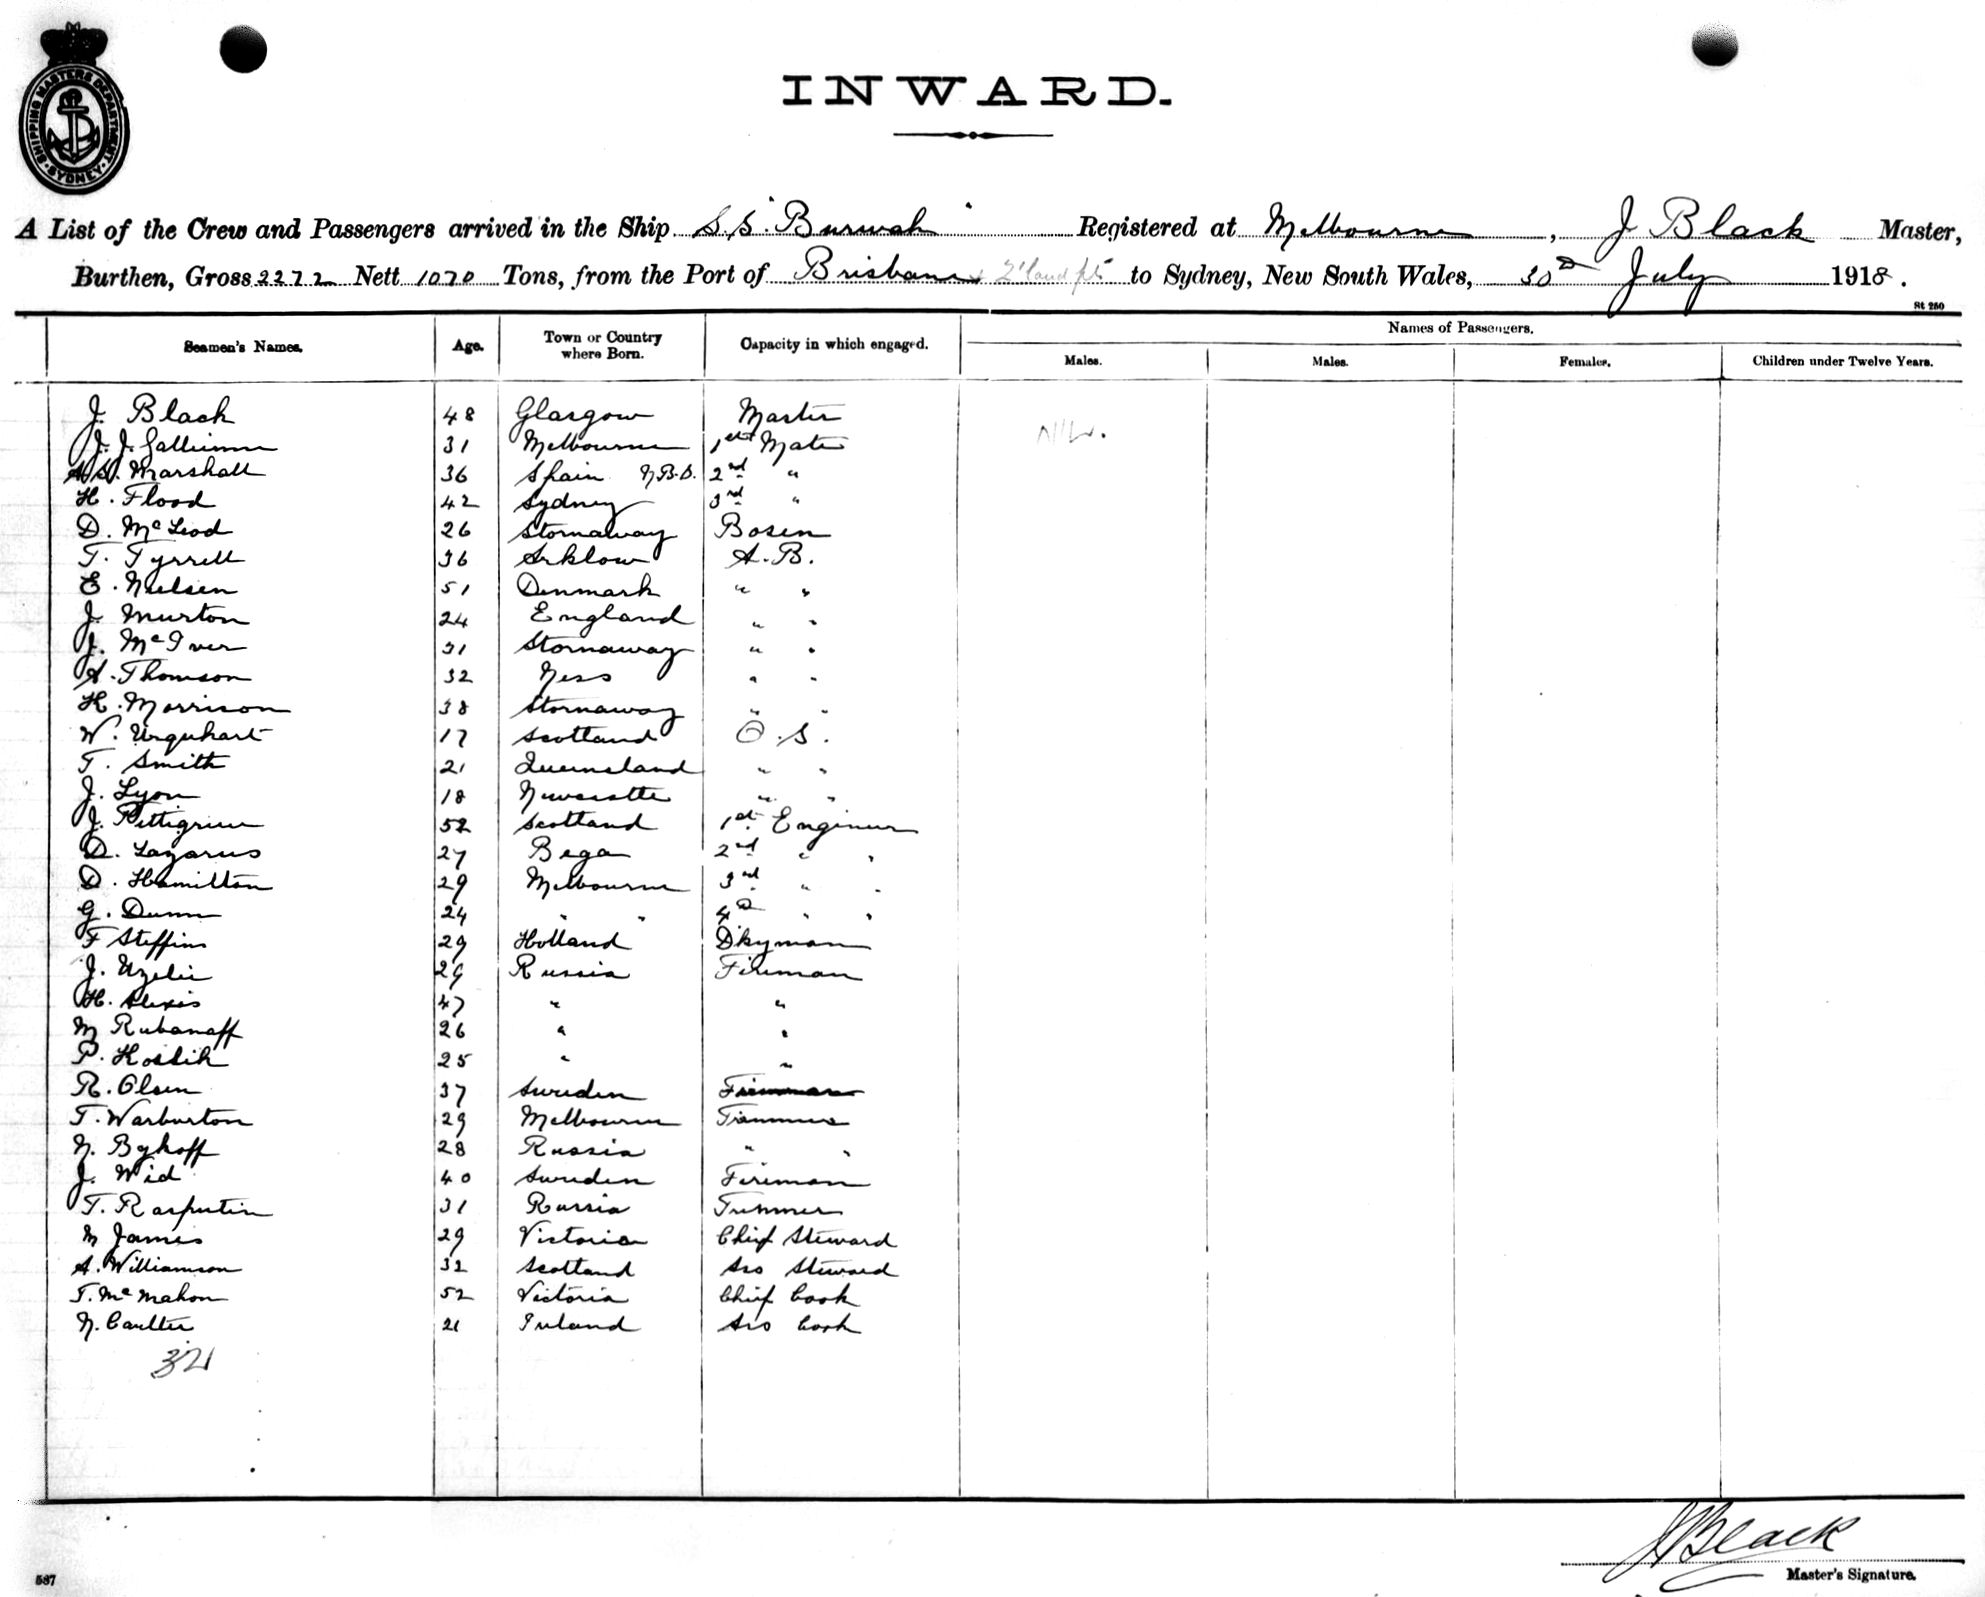 SHIPPING MASTERS DEPARTMENT
SYDNEY
INWARD.
A List of the Crew and Passengers arrived in the Ship S.S. "Burwah" Registered at Melbourne, J Black Master,
Burthen, Gross 2272 Nett 1070 Tons, from the Port of Brisbane & Q'land pts to Sydney, New South Wales, 30th July 1918.
St 250
Seamen's Names. Age. Town or Country where Born. Capacity in which engaged. Names of Passengers.
Males. Males. Females. Children under Twelve Years.
J. Black 48 Glasgow Master Nil.
J. J. 31 Melbourne 1st Mate
Marshall 36 Spain N.B.S. 2nd "
H. Flood 42 Sydney 3rd "
D. McLeod 26 Stornaway Bosen
T. Tyrrell 36 Arklow A.B.
E. Nielsen 51 Denmark " "
J. Murton 24 England " "
J. McIver 31 Stornaway " "
A. Thomson 32 Ness " "
H. Morrison 38 Stornaway " "
W. Urquhart 17 Scotland O.S.
T. Smith 21 Queensland " "
J. Lyon 18 Newcastle " "
J. Pettigrew 52 Scotland 1st Engineer
D. Lazarus 27 Bega 2nd " "
D. Hamilton 29 Melbourne 3rd " "
G. Dunn 24 " " 4th " "
F Steffins 29 Holland Dkyman
J. Uzelie 29 Russia Fireman
H. Alexis 47 " "
M Rubanoff 26 " "
P. Koslik 25 " "
R. Olsen 37 Sweden Fireman
T. Warburton 29 Melbourne Trimmer
N. Bykoff 28 Russia " "
J. Wid 40 Sweden Fireman
T. Rasputin 31 Russia Trimmer
M James 29 Victoria Chief Steward
A. Williamson 32 Scotland Ass Steward
T. McMahon 52 Victoria Chief Cook
N. Coulter 21 Ireland Ass Cook
32
J Black
Master's Signature.
587